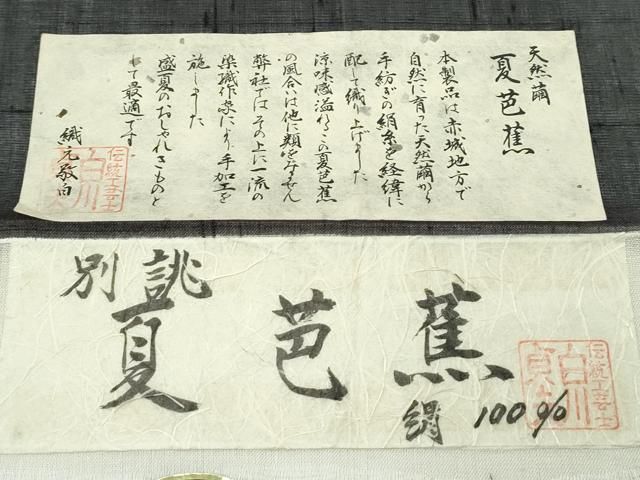 天然繭
夏芭蕉
本製品は赤城地方で
自然に育った天然繭から
手紡ぎの絹糸を経緯に
配して織り上げました
涼味感溢れるこの夏芭蕉
の風合いは他に類をみません
弊社ではその上に一流の
染織作家により手加工を
施しました
盛夏のおしゃれきものと
して最適です
織元敬白
伝統工芸士
白川
別誂
夏芭蕉
絹 100%
伝統工芸士
白川